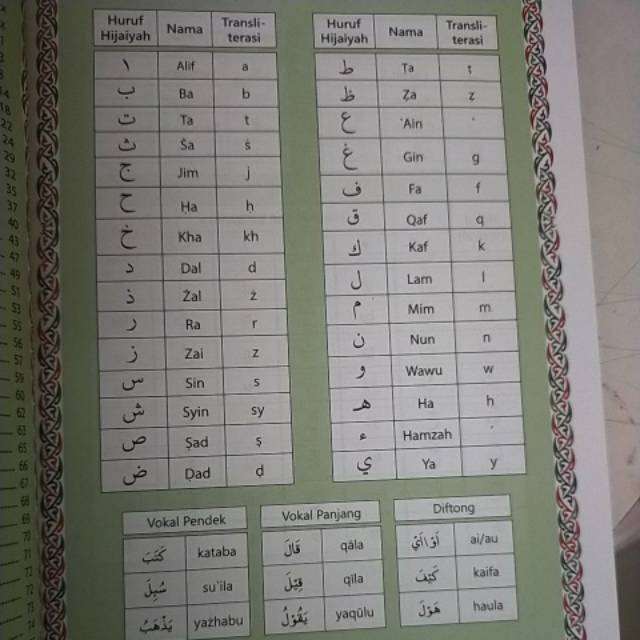 Huruf Hijaiyah Nama Transli-terasi
ا Alif a
ب Ba b
ت Ta t
ث Ṡa ṡ
ج Jim j
ح Ḥa ḥ
خ Kha kh
د Dal d
ذ Żal ż
ر Ra r
ز Zai z
س Sin s
ش Syin sy
ص Ṣad ṣ
ض Ḍad ḍ
Huruf Hijaiyah Nama Transli-terasi
ط Ṭa ṭ
ظ Ẓa ẓ
ع ‘Ain ‘
غ Gin g
ف Fa f
ق Qaf q
ك Kaf k
ل Lam l
م Mim m
ن Nun n
و Wawu w
هـ Ha h
ء Hamzah ’
ي Ya y
Vokal Pendek
كَتَبَ kataba
سُئِلَ su`ila
يَذْهَبُ yażhabu
Vokal Panjang
قَالَ qāla
قِيْلَ qīla
يَقُوْلُ yaqūlu
Diftong
اَوْ/اَيْ ai/au
كَيْفَ kaifa
هَوْلَ haula
22
24
29
32
35
37
40
43
47
49
51
53
55
56
57
59
60
62
63
65
66
67
68
69
70
71
72
73
74